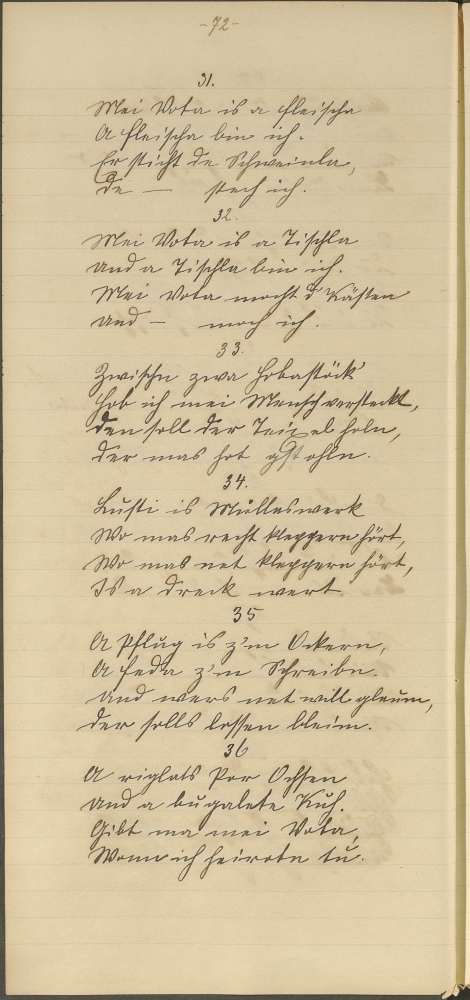 -72-
31.
Mei Vota is a Fleischa
A Fleischa bin ich.
Er sticht de Schweinla,
de — stech ich.
32.
Mei Vota is a Tischla
und a Tischla bin ich.
Mei Vota mocht d' Kästen
und — moch ich.
33.
Zwischn zwa Hobastöck'
Hob ich mei Mensch versteckt,
den soll der Teixel holn,
der mas hot gstohln.
34.
Lusti is Mülleswerk
Wo mas recht kleppern hört,
Wo mas net kleppern hört,
Is a Dreck wert
35
A Pflug is z'm Ockern,
A Feda z'm Schreibn.
und wers net will gleum,
der solls lossen bleim.
36
A riglats Por Ochsen
und a bugalete Kuh.
Gibt ma mei Vota,
Wonn ich heirotn tu.